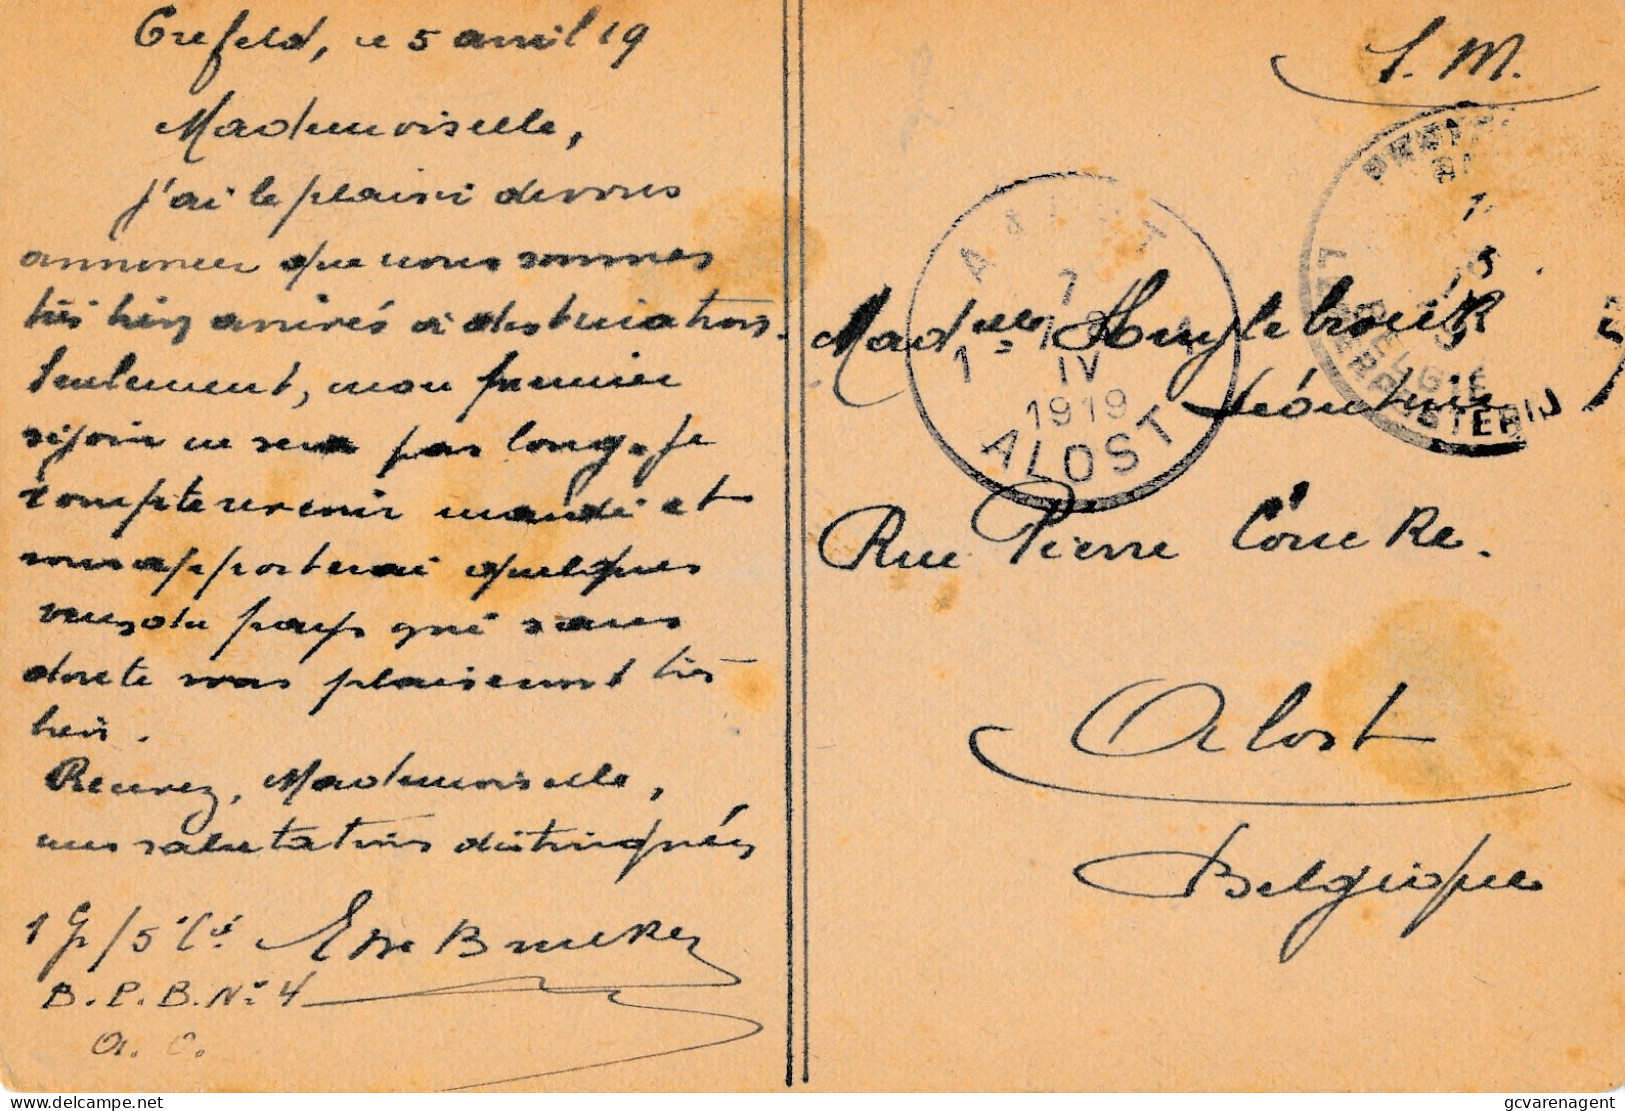 Crefeld, le 5 avril 19
Mademoiselle,
J'ai le plaisir de vous
annoncer que nous sommes
très bien arrivés à destination.
Seulement, mon premier
séjour ne sera pas long. Je
compte revenir mardi et
vous apporterai quelques
vues du pays qui sans
doute vous plaisent très
bien.
Recevez, Mademoiselle,
mes salutations distinguées
1 Gr/5 Cie
B.P.B. No 4
A. O.
S. M.
AALST
7
1 - 18
IV
1919
ALOST
BELGIE
LEGERPOSTERIJ
Madelle Huylebroeck
Léontine
Rue Pierre Coucke.
Alost
Belgique
gcvarenagent
delcampe.net